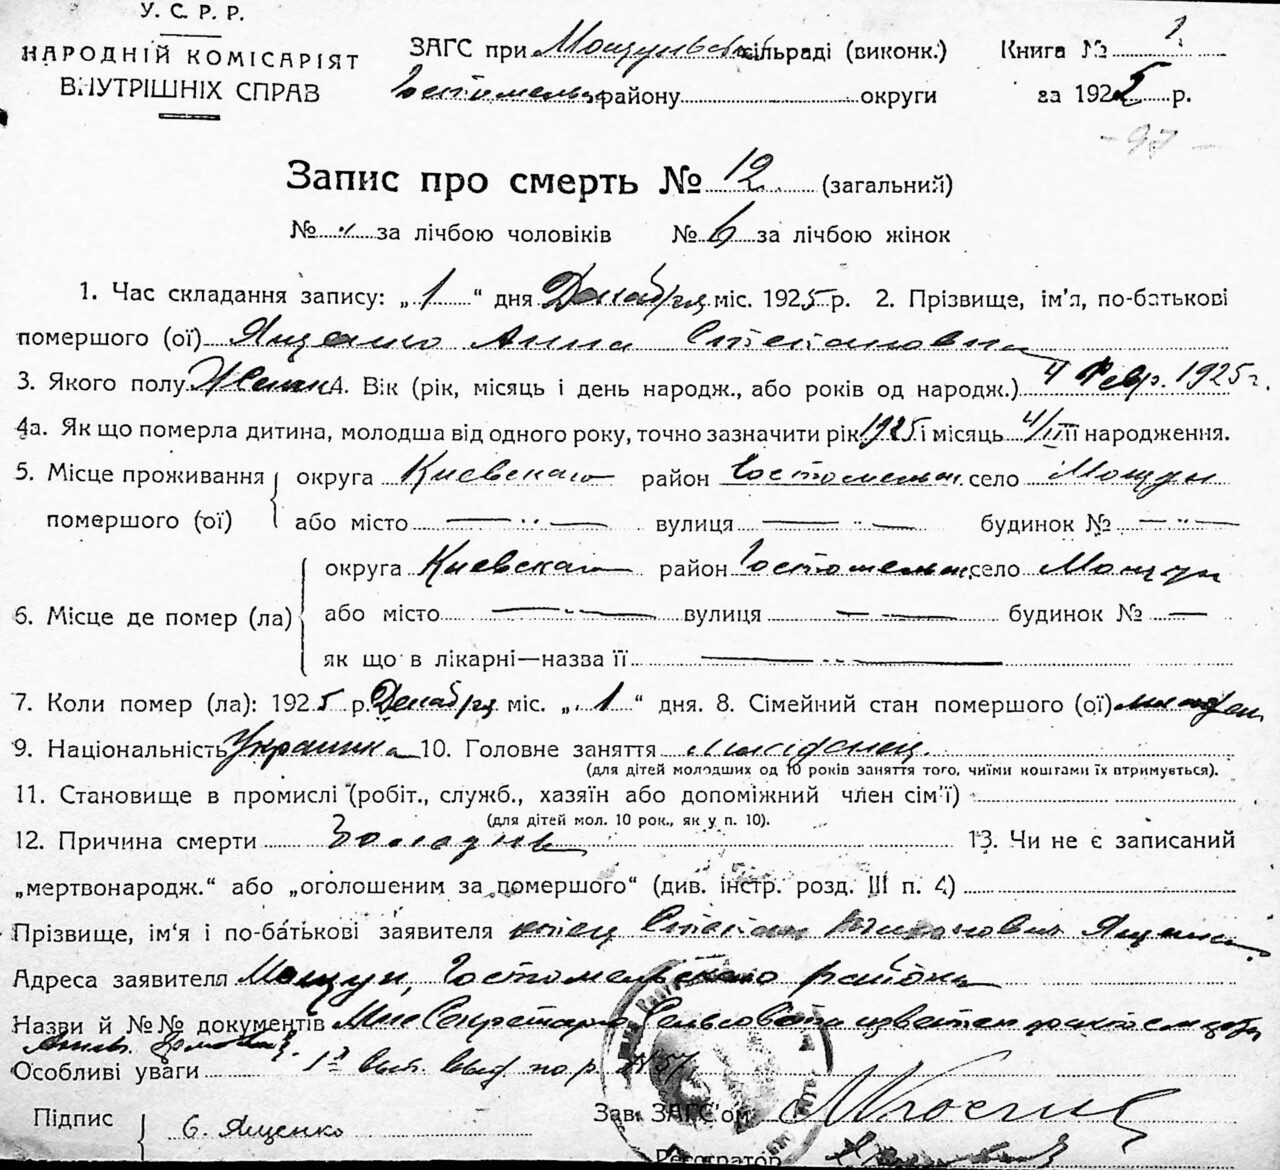 У. С. Р. Р.
НАРОДНІЙ КОМІСАРІЯТ
ВНУТРІШНІХ СПРАВ
ЗАГС при Мощунской сільраді (виконк.)
Гостомельск району округи
Книга № 1
за 1925 р.
- 97 -
Запис про смерть № 12 (загальний)
№ „ за лічбою чоловіків № 6 за лічбою жінок
1. Час складання запису: „ 1 “ дня Декабря міс. 1925 р. 2. Прізвище, ім'я, по-батькові
помершого (ої) Ященко Анна Степановна
3. Якого полу Женск 4. Вік (рік, місяць і день народж., або років од народж.) 4 Февр. 1925 г.
4а. Як що померла дитина, молодша від одного року, точно зазначити рік 1925 і місяць 4/II її народження.
5. Місце проживання
помершого (ої)
округа Киевская район Гостомельск. село Мощун
або місто — „ — вулиця — „ — будинок № — „ —
6. Місце де помер (ла)
округа Киевская район Гостомельск. село Мощун
або місто — „ — вулиця — „ — будинок № —
як що в лікарні—назва її — „ —
7. Коли помер (ла): 1925 р. Декабря міс. „ 1 “ дня. 8. Сімейний стан помершого (ої) младен
9. Національність Украинка 10. Головне заняття
(для дітей молодших од 10 років заняття того, чиїми коштами їх втримується).
11. Становище в промислі (робіт., служб., хазяїн або допоміжний член сім'ї)
(для дітей мол. 10 рок., як у п. 10).
12. Причина смерти 13. Чи не є записаний
„мертвонародж.“ або „оголошеним за помершого“ (див. інстр. розд. III п. 4)
Прізвище, ім'я і по-батькові заявителя отец Степан Ященко
Адреса заявителя Мощун, Гостомельского района
Назви й №№ документів Мне Секретарю Сельсовета
Особливі уваги
Підпис
Є. Ященко
Зав. ЗАГС'ом
Реєстратор